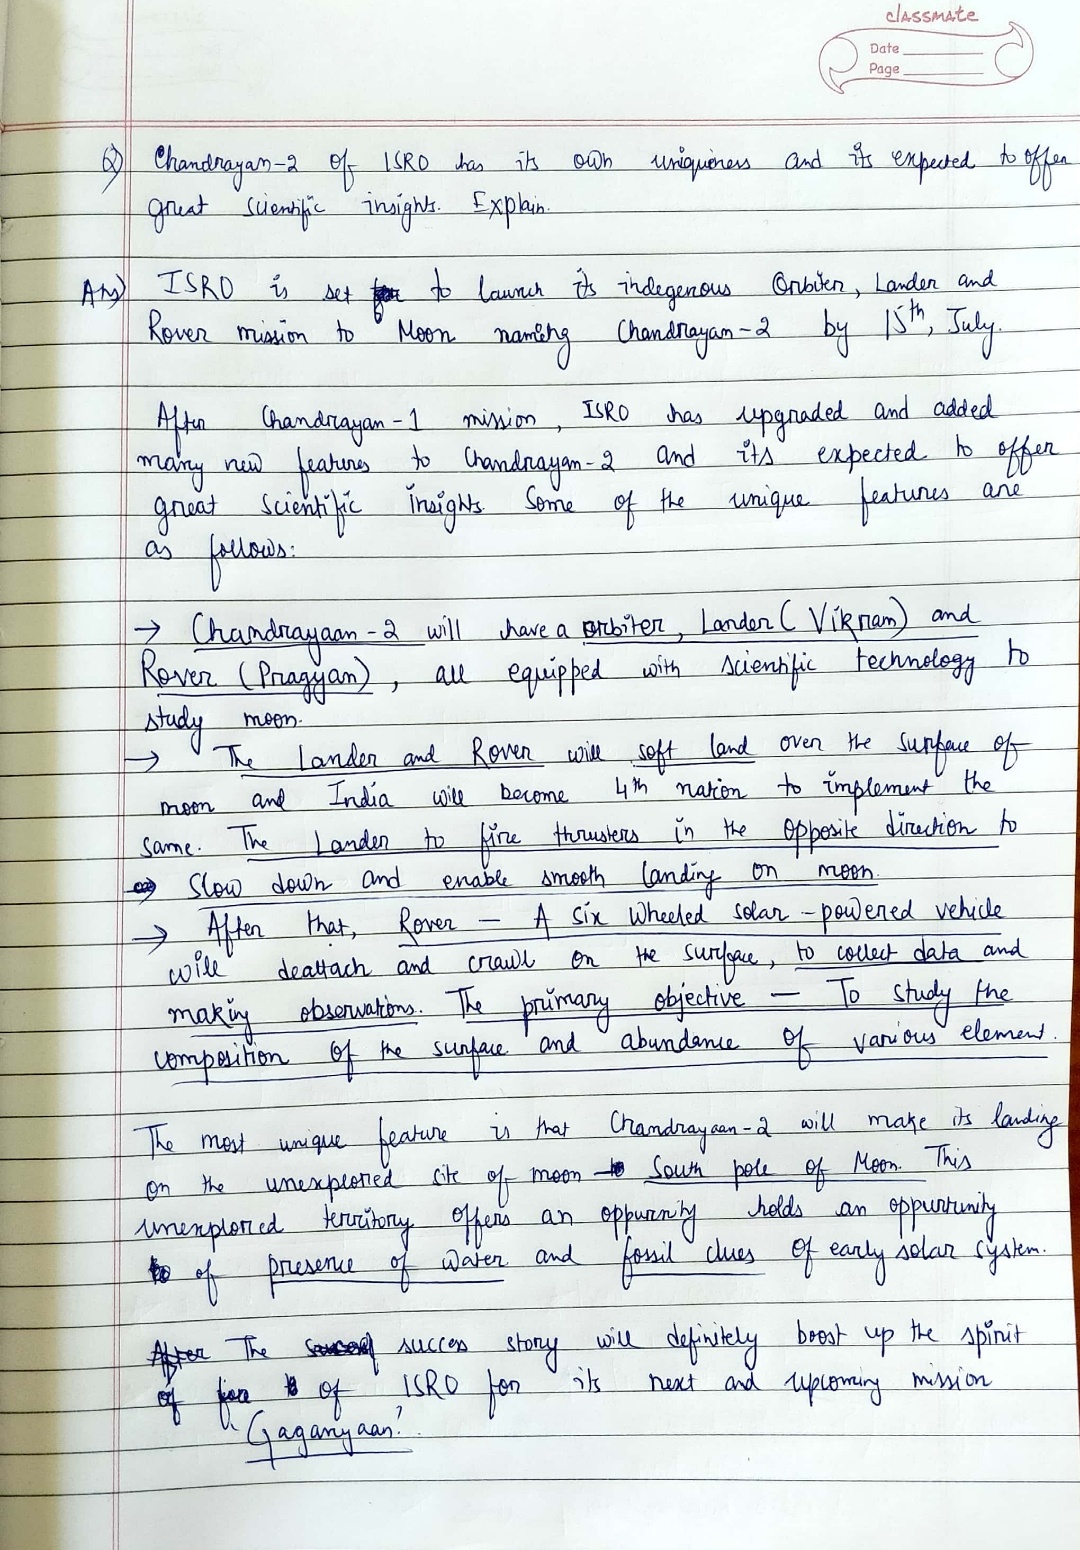 classmate
Date
Page
Q) Chandrayan-2 of ISRO has its own uniqueness and its expected to offer
great scientific insights. Explain.
Ans) ISRO is set to launch its indegenous Orbiter, Lander and
Rover mission to Moon naming Chandrayan-2 by 15th, July.
After Chandrayan-1 mission, ISRO has upgraded and added
many new features to Chandrayan-2 and its expected to offer
great scientific insights. Some of the unique features are
as follows:
→ Chandrayaan-2 will have a orbiter, Lander (Vikram) and
Rover (Pragyan), all equipped with scientific technology to
study moon.
→ The Lander and Rover will soft land over the surface of
moon and India will become 4th nation to implement the
same. The Lander to fire thrusters in the opposite direction to
slow down and enable smooth landing on moon.
→ After that, Rover - A six wheeled solar-powered vehicle
will deattach and crawl on the surface, to collect data and
making observations. The primary objective - To study the
composition of the surface and abundance of various element.
The most unique feature is that Chandrayaan-2 will make its landing
on the unexplored site of moon South pole of Moon. This
unexplored territory offers an oppurnity holds an oppurtunity
of presence of water and fossil clues of early solar system.
The success story will definitely boost up the spirit
of ISRO for its next and upcoming mission
"Gaganyaan".